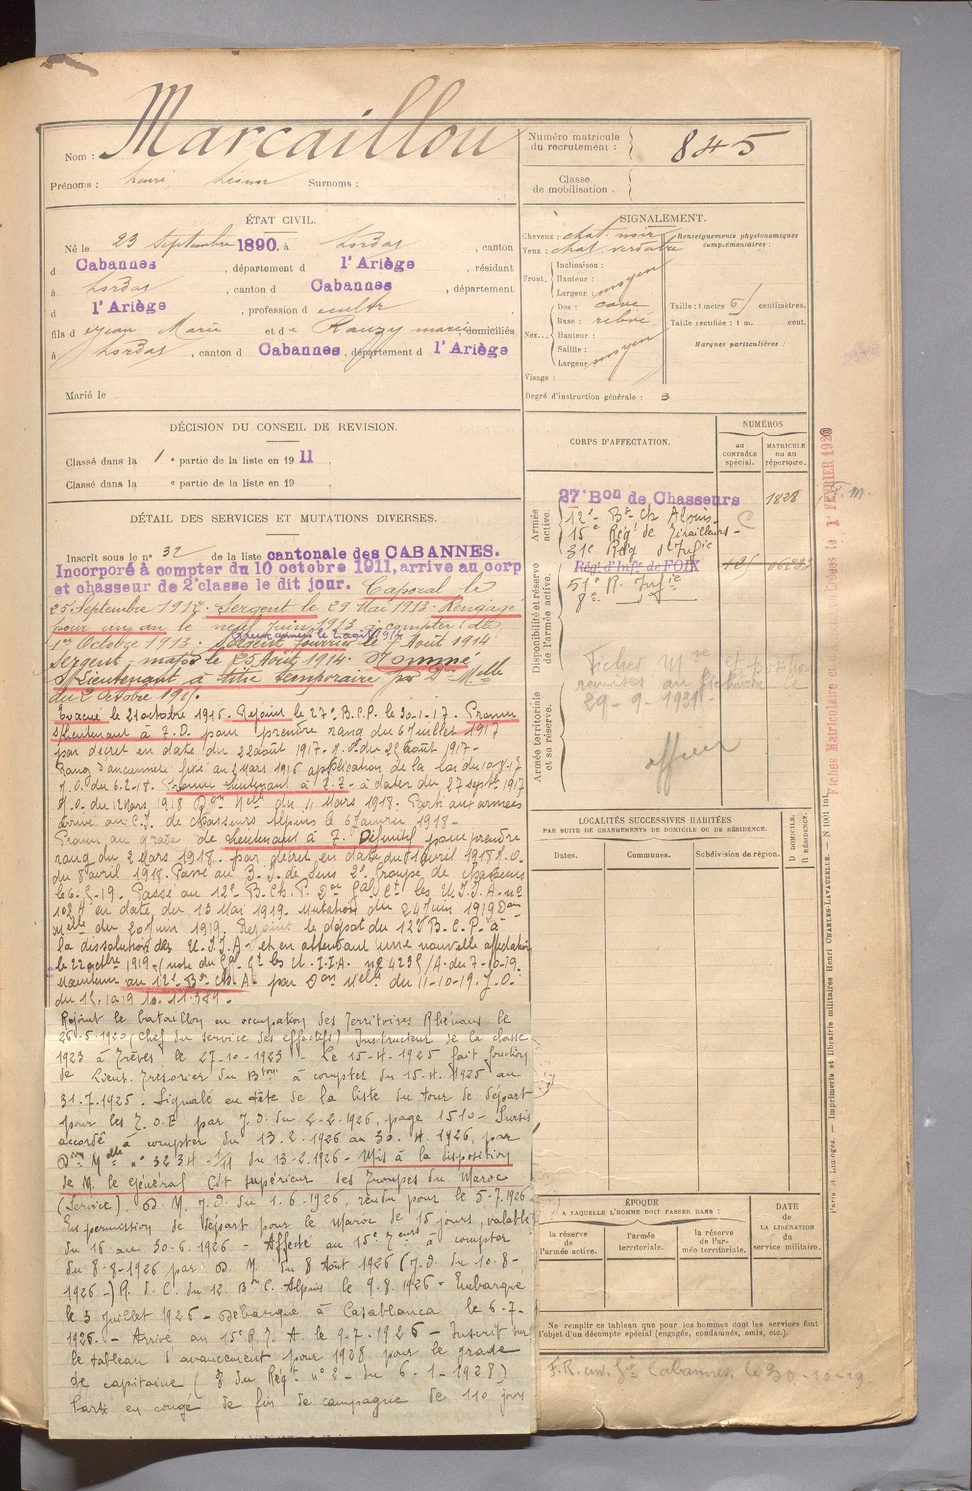 Nom : Marcaillou
Prénoms : Henri Surnoms :
Numéro matricule du recrutement : 845
Classe de mobilisation .
ÉTAT CIVIL.
Né le 23 Septembre 1890, à Lordat , canton
d Cabannes , département d l'Ariège , résidant
à Lordat , canton d Cabannes , département
d l'Ariège , profession de cultr
fils d e Jean Marie et d e Rauzy marie , domiciliés
à Lordat , canton d Cabannes , département d l'Ariège
Marié le
SIGNALEMENT.
Cheveux : chat. noir
Yeux : chat. verdâtre
Renseignements physionomiques complémentaires.
Front. Inclinaison :
Hauteur :
Largeur : moyen
Nez... Dos : cave
Base : relevé
Hauteur :
Saillie :
Largeur moyen
Visage :
Taille : 1 mètre 6 centimètres.
Taille rectifiée : 1 m. cent.
Marques particulières :
Degré d'instruction générale : 3
DÉCISION DU CONSEIL DE REVISION.
Classé dans la 1 e partie de la liste en 1911 .
Classé dans la e partie de la liste en 19 .
DÉTAIL DES SERVICES ET MUTATIONS DIVERSES.
Inscrit sous le n° 32 de la liste cantonale des CABANNES.
Incorporé à compter du 10 octobre 1911, arrive au corp
et chasseur de 2e classe le dit jour. Caporal le
25 Septembre 1912. Sergent le 29 Mai 1913. Rengagé
pour un an le neuf Juin 1913 a compter du
1er Octobre 1913. Sergent fourrier le 2 Août 1914
Sergent major le 25 Août 1914. Nommé
S/Lieutenant à titre temporaire par Don Melle
du 2 octobre 1915.
Evacué le 21 octobre 1916. Rejoint le 27e B.C.P. le 30-1-17. Promu
s/lieutenant à T.D. pour prendre rang du 6 Juillet 1917
par décret en date du 22 août 1917. J.O. du 25 août 1917-
Rang d'ancienneté fixé au 2 Mars 1916 application de la loi du 10-8-17
J.O. du 6.2.18. Promu lieutenant à T.T. à dater du 27 septbre 1917
J.O. du 12 Mars 1918 Don Melle du 11 Mars 1918. Parti aux armées
arrivé au C.I. de chasseurs depuis le 6 Janvier 1918-
Promu au grade de lieutenant à T. Définitif pour prendre
rang du 2 Mars 1918. par décret en date du 1 avril 1918 J.O.
du 8 avril 1918. Passé au B.I. de Sens 2e Groupe de chasseurs
le 6-5-19. Passé au 12e B.Ch.P. Don Gal Ct les U.I.I.A. no
en date du 13 Mai 1919. Mutation du 24 Juin 1919 Don
Melle du 20 Juin 1919. Rejoint le dépôt du 12e B.C.P. à
la dissolution des U.I.I.A. et en attendant une nouvelle affectation
le 22 octbre 1919 (note du Gal Ct les U.I.I.A. no 4235/A. du 7-10-19.
Maintenu au 12e Bon Ch. A. par Don Melle du 11-10-19. J.O.
du 15.10.19 p. 11.389.
Rejoint le bataillon en occupation des Territoires Rhénans le
26-5-1920 (Chef du service des effectifs) Instructeur de la classe
1923 à Trèves le 27-10-1923 - Le 15-4-1925 fait fonction
de Lieut. Trésorier du Bton à compter du 15.4.1925 au
31.7.1925. Signalé en tête de la liste du tour de départ
pour les T.O.E par J.O. du 2-2-1926, page 1510- Sursis
accordé à compter du 13.2.1926 au 30.4.1926, par
Don Melle no 3234 - 1/11 du 13-2-1926 - Mis à la disposition
de M. le Général Cdt supérieur des Troupes du Maroc
(Service). D.M. J.O. du 1.6.1926, rendu pour le 5-7-1926
En permission de départ pour le Maroc de 15 jours, valable
du 16 au 30.6.1926 - Affecté au 15e T. à compter
du 8-8-1926 par D.M. du 8 Août 1926 (J.O. du 10-8-
1926 -) R. d. C. du 12 Bon C. Alpins le 9.8.1926 - Embarqué
le 3 Juillet 1926 - Débarqué à Casablanca le 6-7-
1926. - Arrivé au 15e R.T.A. le 9-7-1926 - Inscrit sur
le tableau d'avancement pour 1928 pour le grade
de capitaine ( du Régt no 2 - du 6-1-1928)
Parti en congé de fin de campagne de 110 jours
CORPS D'AFFECTATION.
NUMÉROS
au CONTRÔLE spécial.
MATRICULE ou au répertoire.
Armée active.
27e Bon de Chasseurs 1828
12e Bon Ch Alpins
15e Régt de Tirailleurs
31e Rég d'Infie
Disponibilité et réserve de l'armée active.
Régt d'Infie de FOIX
51e R. Infie
8e
Armée territoriale et sa réserve.
Fiches Mle et position
remises au fichier le
29-9-1931
officier
Fiches Matriculaire et créées le 1er FÉVRIER 1926
LOCALITÉS SUCCESSIVES HABITÉES
PAR SUITE DE CHANGEMENTS DE DOMICILE OU DE RÉSIDENCE.
Dates.
Communes.
Subdivision de région.
D DOMICILE.
R RÉSIDENCE.
ÉPOQUE
A LAQUELLE L'HOMME DOIT PASSER DANS :
la réserve de l'armée active.
l'armée territoriale.
la réserve de l'armée territoriale.
DATE de LA LIBÉRATION du service militaire.
Ne remplir ce tableau que pour les hommes dont les services font
l'objet d'un décompte spécial (engagés, condamnés, omis, etc.).
F.R. Gie Cabannes, le 30-10-19.
Paris et Limoges. — Imprimerie et librairie militaires Henri CHARLES-LAVAUZELLE. — N 1001 int